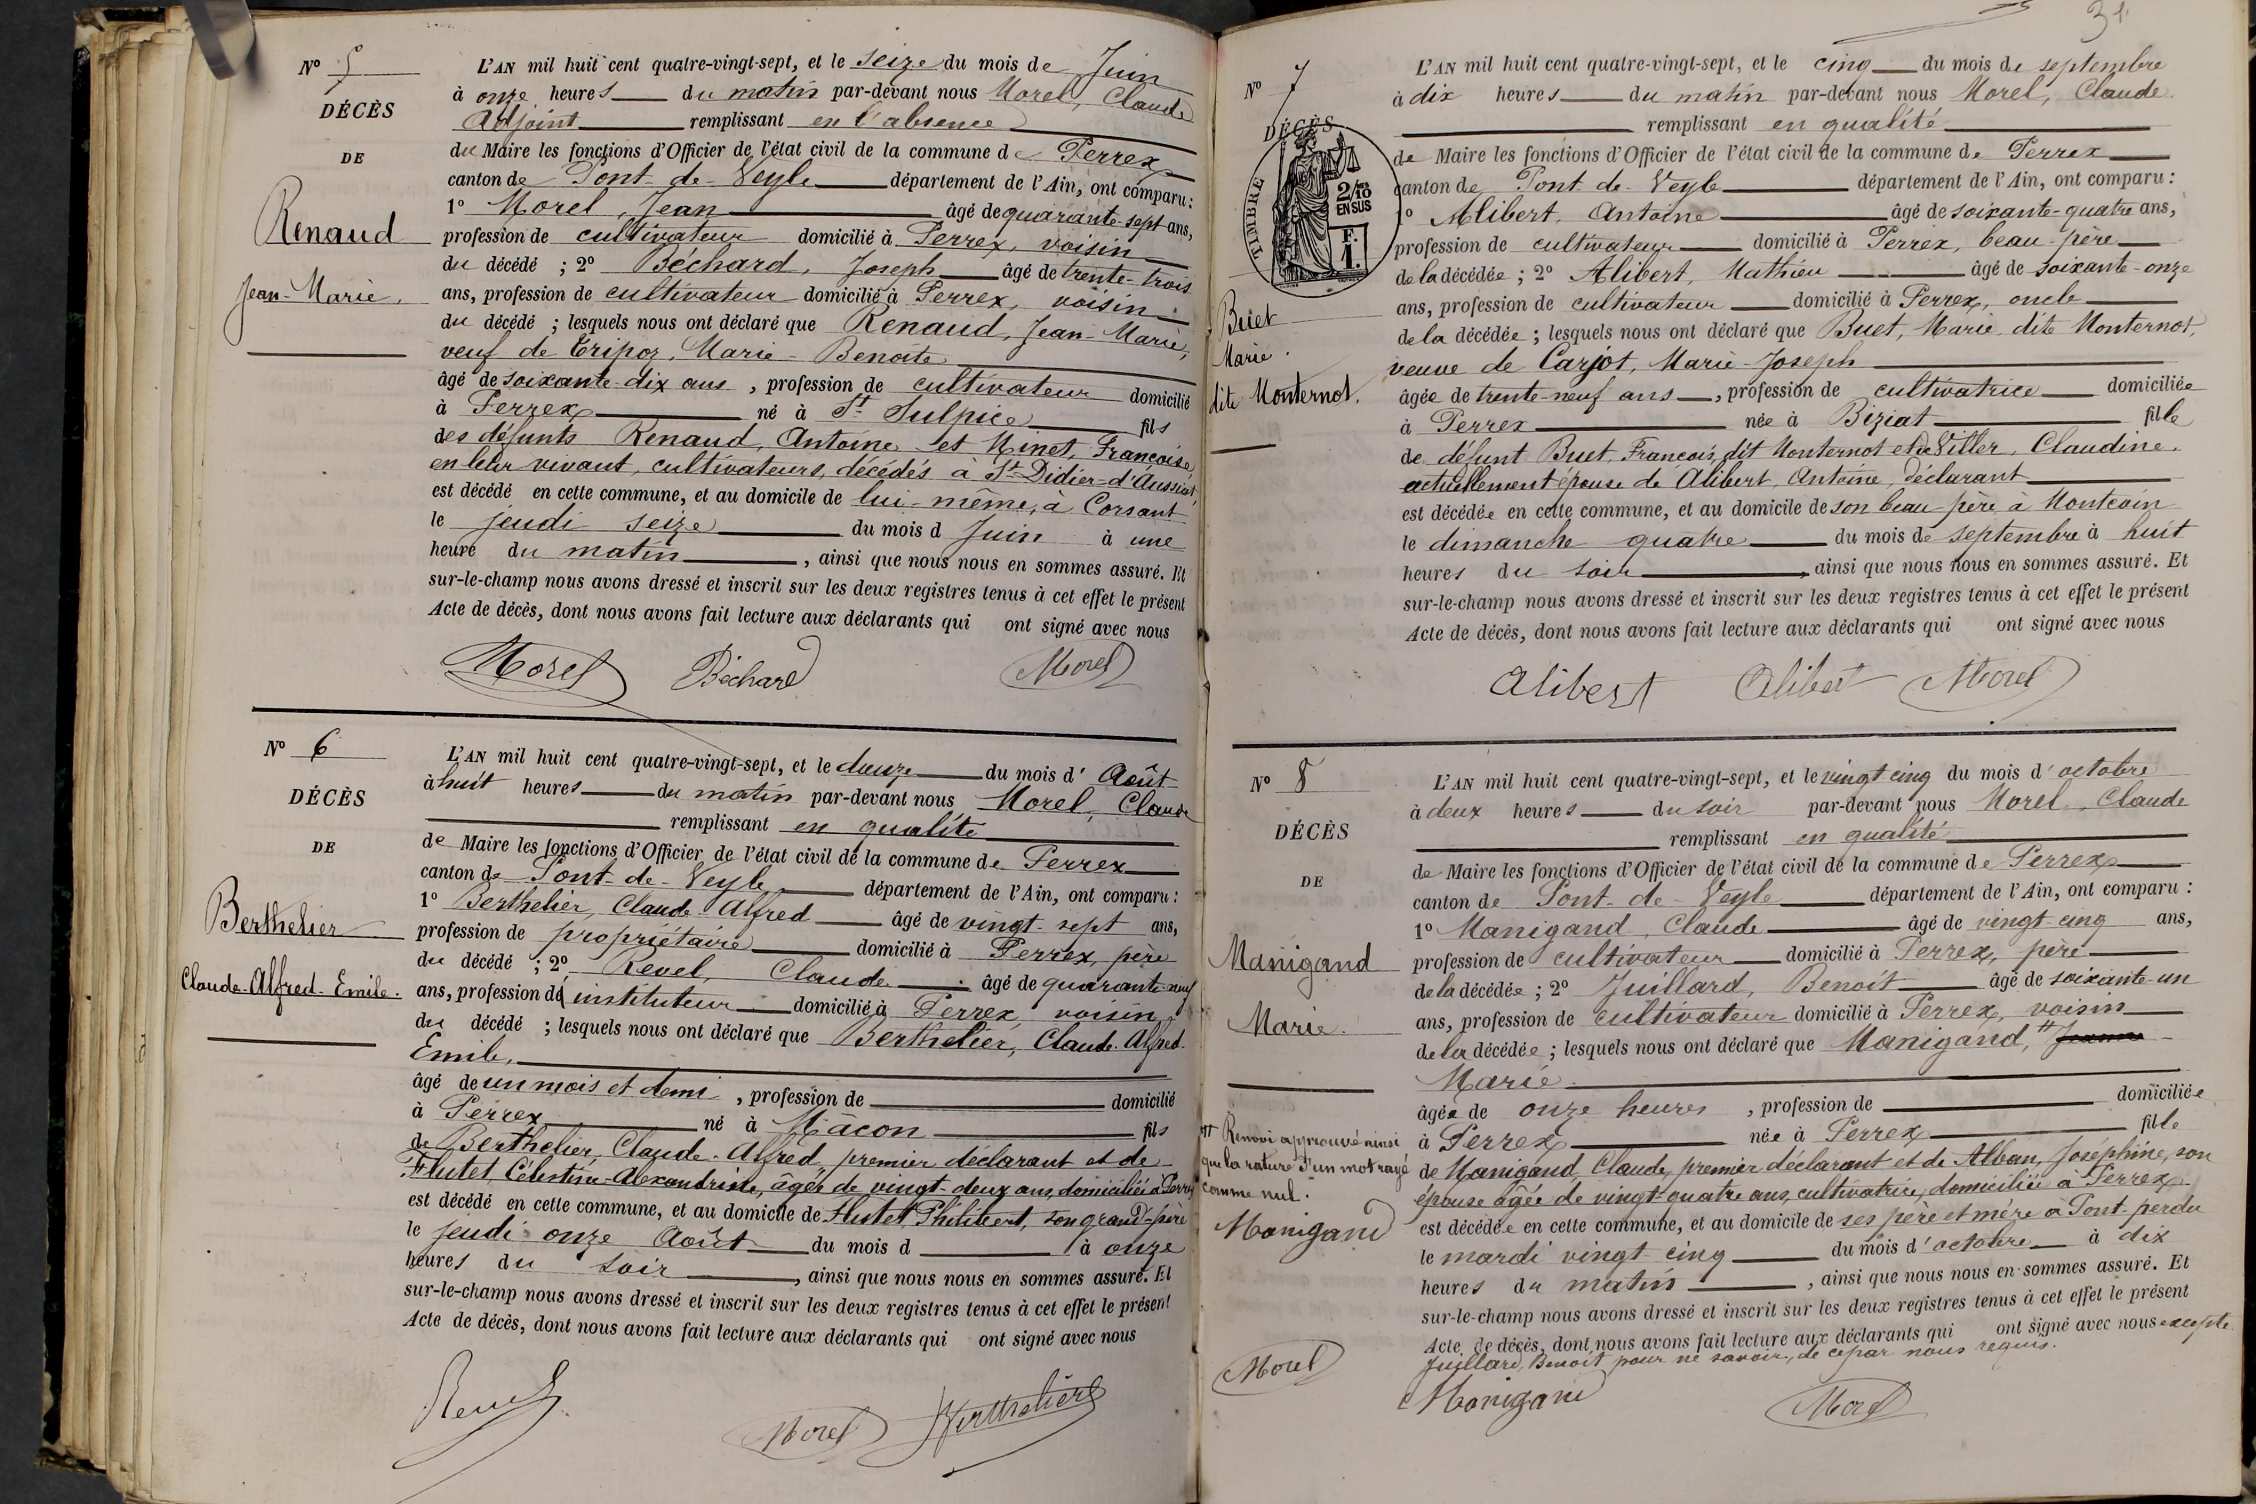 Nº 5
DÉCÈS
DE
Renaud
Jean-Marie.
L'AN mil huit cent quatre-vingt-sept, et le seize du mois de Juin
à onze heures du matin par-devant nous Morel, Claude
Adjoint remplissant en l'absence
du Maire les fonctions d'Officier de l'état civil de la commune de Perrex
canton de Pont-de-Veyle département de l'Ain, ont comparu :
1º Morel, Jean âgé de quarante-sept ans,
profession de cultivateur domicilié à Perrex, voisin
du décédé ; 2º Béchard, Joseph âgé de trente-trois
ans, profession de cultivateur domicilié à Perrex, voisin
du décédé ; lesquels nous ont déclaré que Renaud, Jean-Marie,
veuf de Tripoz, Marie-Benoite
âgé de soixante-dix ans, profession de cultivateur domicilié
à Perrex né à St Sulpice fils
des défunts Renaud, Antoine et Minet, Françoise,
en leur vivant, cultivateurs, décédés à St-Didier-d'Aussiat,
est décédé en cette commune, et au domicile de lui-même, à Corsant
le jeudi seize du mois d Juin à une
heure du matin, ainsi que nous nous en sommes assuré. Et
sur-le-champ nous avons dressé et inscrit sur les deux registres tenus à cet effet le présent
Acte de décès, dont nous avons fait lecture aux déclarants qui ont signé avec nous
Morel Béchard Morel
Nº 6
DÉCÈS
DE
Berthelier
Claude-Alfred-Emile.
L'AN mil huit cent quatre-vingt-sept, et le douze du mois d'Août
à huit heures du matin par-devant nous Morel, Claude
remplissant en qualité
de Maire les fonctions d'Officier de l'état civil de la commune de Perrex
canton de Pont-de-Veyle département de l'Ain, ont comparu :
1º Berthelier, Claude-Alfred âgé de vingt-sept ans,
profession de propriétaire domicilié à Perrex, père
du décédé ; 2º Revel, Claude âgé de quarante-neuf
ans, profession de instituteur domicilié à Perrex, voisin
du décédé ; lesquels nous ont déclaré que Berthelier, Claude-Alfred-
Emile,
âgé de un mois et demi, profession de domicilié
à Perrex né à Mâcon fils
de Berthelier, Claude-Alfred, premier déclarant et de
Flutet, Célestine-Alexandrine, âgée de vingt-deux ans, domiciliée à Perrex
est décédé en cette commune, et au domicile de Flutet Philibert, son grand-père
le jeudi onze Août du mois d à onze
heures du soir, ainsi que nous nous en sommes assuré. Et
sur-le-champ nous avons dressé et inscrit sur les deux registres tenus à cet effet le présent
Acte de décès, dont nous avons fait lecture aux déclarants qui ont signé avec nous
Revel Morel Berthelier
31
Nº 7
DÉCÈS
TIMBRE
2/10 EN SUS
F. 1.
Buet
Marie.
dite Monternot.
L'AN mil huit cent quatre-vingt-sept, et le cinq du mois de septembre
à dix heures du matin par-devant nous Morel, Claude
remplissant en qualité
de Maire les fonctions d'Officier de l'état civil de la commune de Perrex
canton de Pont-de-Veyle département de l'Ain, ont comparu :
1º Alibert, Antoine âgé de soixante-quatre ans,
profession de cultivateur domicilié à Perrex, beau-père
de la décédée ; 2º Alibert, Mathieu âgé de soixante-onze
ans, profession de cultivateur domicilié à Perrex, oncle
de la décédée ; lesquels nous ont déclaré que Buet, Marie dite Monternot,
veuve de Carjot, Marie-Joseph
âgée de trente-neuf ans, profession de cultivatrice domiciliée
à Perrex née à Biziat fille
de défunt Buet, François, dit Monternot et de Viller, Claudine,
actuellement épouse de Alibert, Antoine, déclarant
est décédée en cette commune, et au domicile de son beau-père à Montcoin
le dimanche quatre du mois de septembre à huit
heures du soir, ainsi que nous nous en sommes assuré. Et
sur-le-champ nous avons dressé et inscrit sur les deux registres tenus à cet effet le présent
Acte de décès, dont nous avons fait lecture aux déclarants qui ont signé avec nous
Alibert Alibert Morel
Nº 8
DÉCÈS
DE
Manigand
Marie.
# Renvoi approuvé ainsi
que la rature d'un mot rayé
comme nul.
Manigand
Morel
L'AN mil huit cent quatre-vingt-sept, et le vingt cinq du mois d'octobre
à deux heures du soir par-devant nous Morel, Claude
remplissant en qualité
de Maire les fonctions d'Officier de l'état civil de la commune de Perrex
canton de Pont-de-Veyle département de l'Ain, ont comparu :
1º Manigand, Claude âgé de vingt-cinq ans,
profession de cultivateur domicilié à Perrex, père
de la décédée ; 2º Juillard, Benoît âgé de soixante-un
ans, profession de cultivateur domicilié à Perrex, voisin
de la décédée ; lesquels nous ont déclaré que Manigand, # Jeanne
Marie
âgée de onze heures, profession de domiciliée
à Perrex née à Perrex fille
de Manigand Claude, premier déclarant et de Alban, Joséphine, son
épouse âgée de vingt-quatre ans, cultivatrice, domiciliée à Perrex
est décédée en cette commune, et au domicile de ses père et mère à Pont-perdu
le mardi vingt cinq du mois d'octobre à dix
heures du matin, ainsi que nous nous en sommes assuré. Et
sur-le-champ nous avons dressé et inscrit sur les deux registres tenus à cet effet le présent
Acte de décès, dont nous avons fait lecture aux déclarants qui ont signé avec nous excepté
Juillard, Benoît pour ne savoir, de ce par nous requis.
Manigand Morel